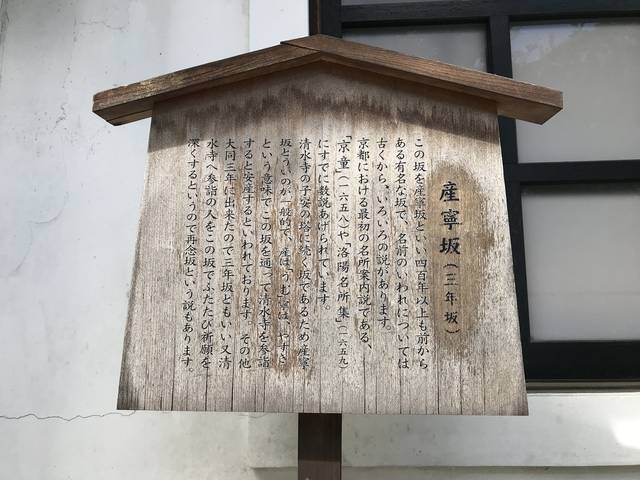 産寧坂(三年坂)
この坂を産寧坂といい四百年以上も前から
ある有名な坂で、名前のいわれについては
古くから、いろいろの説があります。
京都における最初の名所案内説である、
「京童」(一六五八)や「洛陽名所集」(一六五九)
にすでに数説あげられています。
清水寺の子安の塔に続く坂であるため産寧
坂というのが一般的で、産は、うむ寧は、やすき
という意味でこの坂を通って清水寺を参詣
すると安産するといわれております その他
大同三年に出来たので三年坂ともいい又清
水寺へ参詣の人をこの坂でふたたび祈願を
深くするというので再念坂という説もあります。